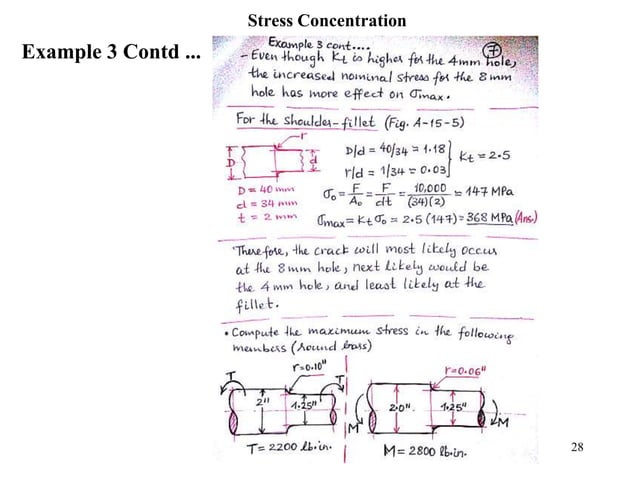 Stress Concentration
Example 3 Contd ...
Example 3 cont....
7
- Even though Kt is higher for the 4mm hole,
the increased nominal stress for the 8 mm
hole has more effect on σmax.
For the shoulder-fillet (Fig. A-15-5)
r
D
d
D/d = 40/34 = 1.18
r/d = 1/34 = 0.03
Kt = 2.5
D = 40 mm
d = 34 mm
t = 2 mm
σo = F/Ao = F/dt = 10,000/(34)(2) = 147 MPa
σmax = Kt σo = 2.5 (147) = 368 MPa (Ans.)
Therefore, the crack will most likely occur
at the 8mm hole, next likely would be
the 4 mm hole, and least likely at the
fillet.
• Compute the maximum stress in the following
members (round bars)
r=0.10"
T
T
2"
1.25"
T = 2200 lb.in.
r=0.06"
2.0"
1.25"
M
M
M = 2800 lb.in.
28